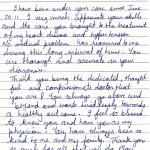 I have been under your care since June
2011. I very much appreciate your skills
and the care you brought to the treatment
of my heart disease and hypertension.
No medical problem has
me during this long interval of time. You
are thorough and accurate in your
diagnosis.
Thank you being the dedicated, thought-
ful and compassionate doctor that
you are. You always go above and
beyond and work tirelessly towards
a healthy outcome. I feel so blessed
to know you and have you as my
physician. You have always been so
kind to me and my family. Thank you